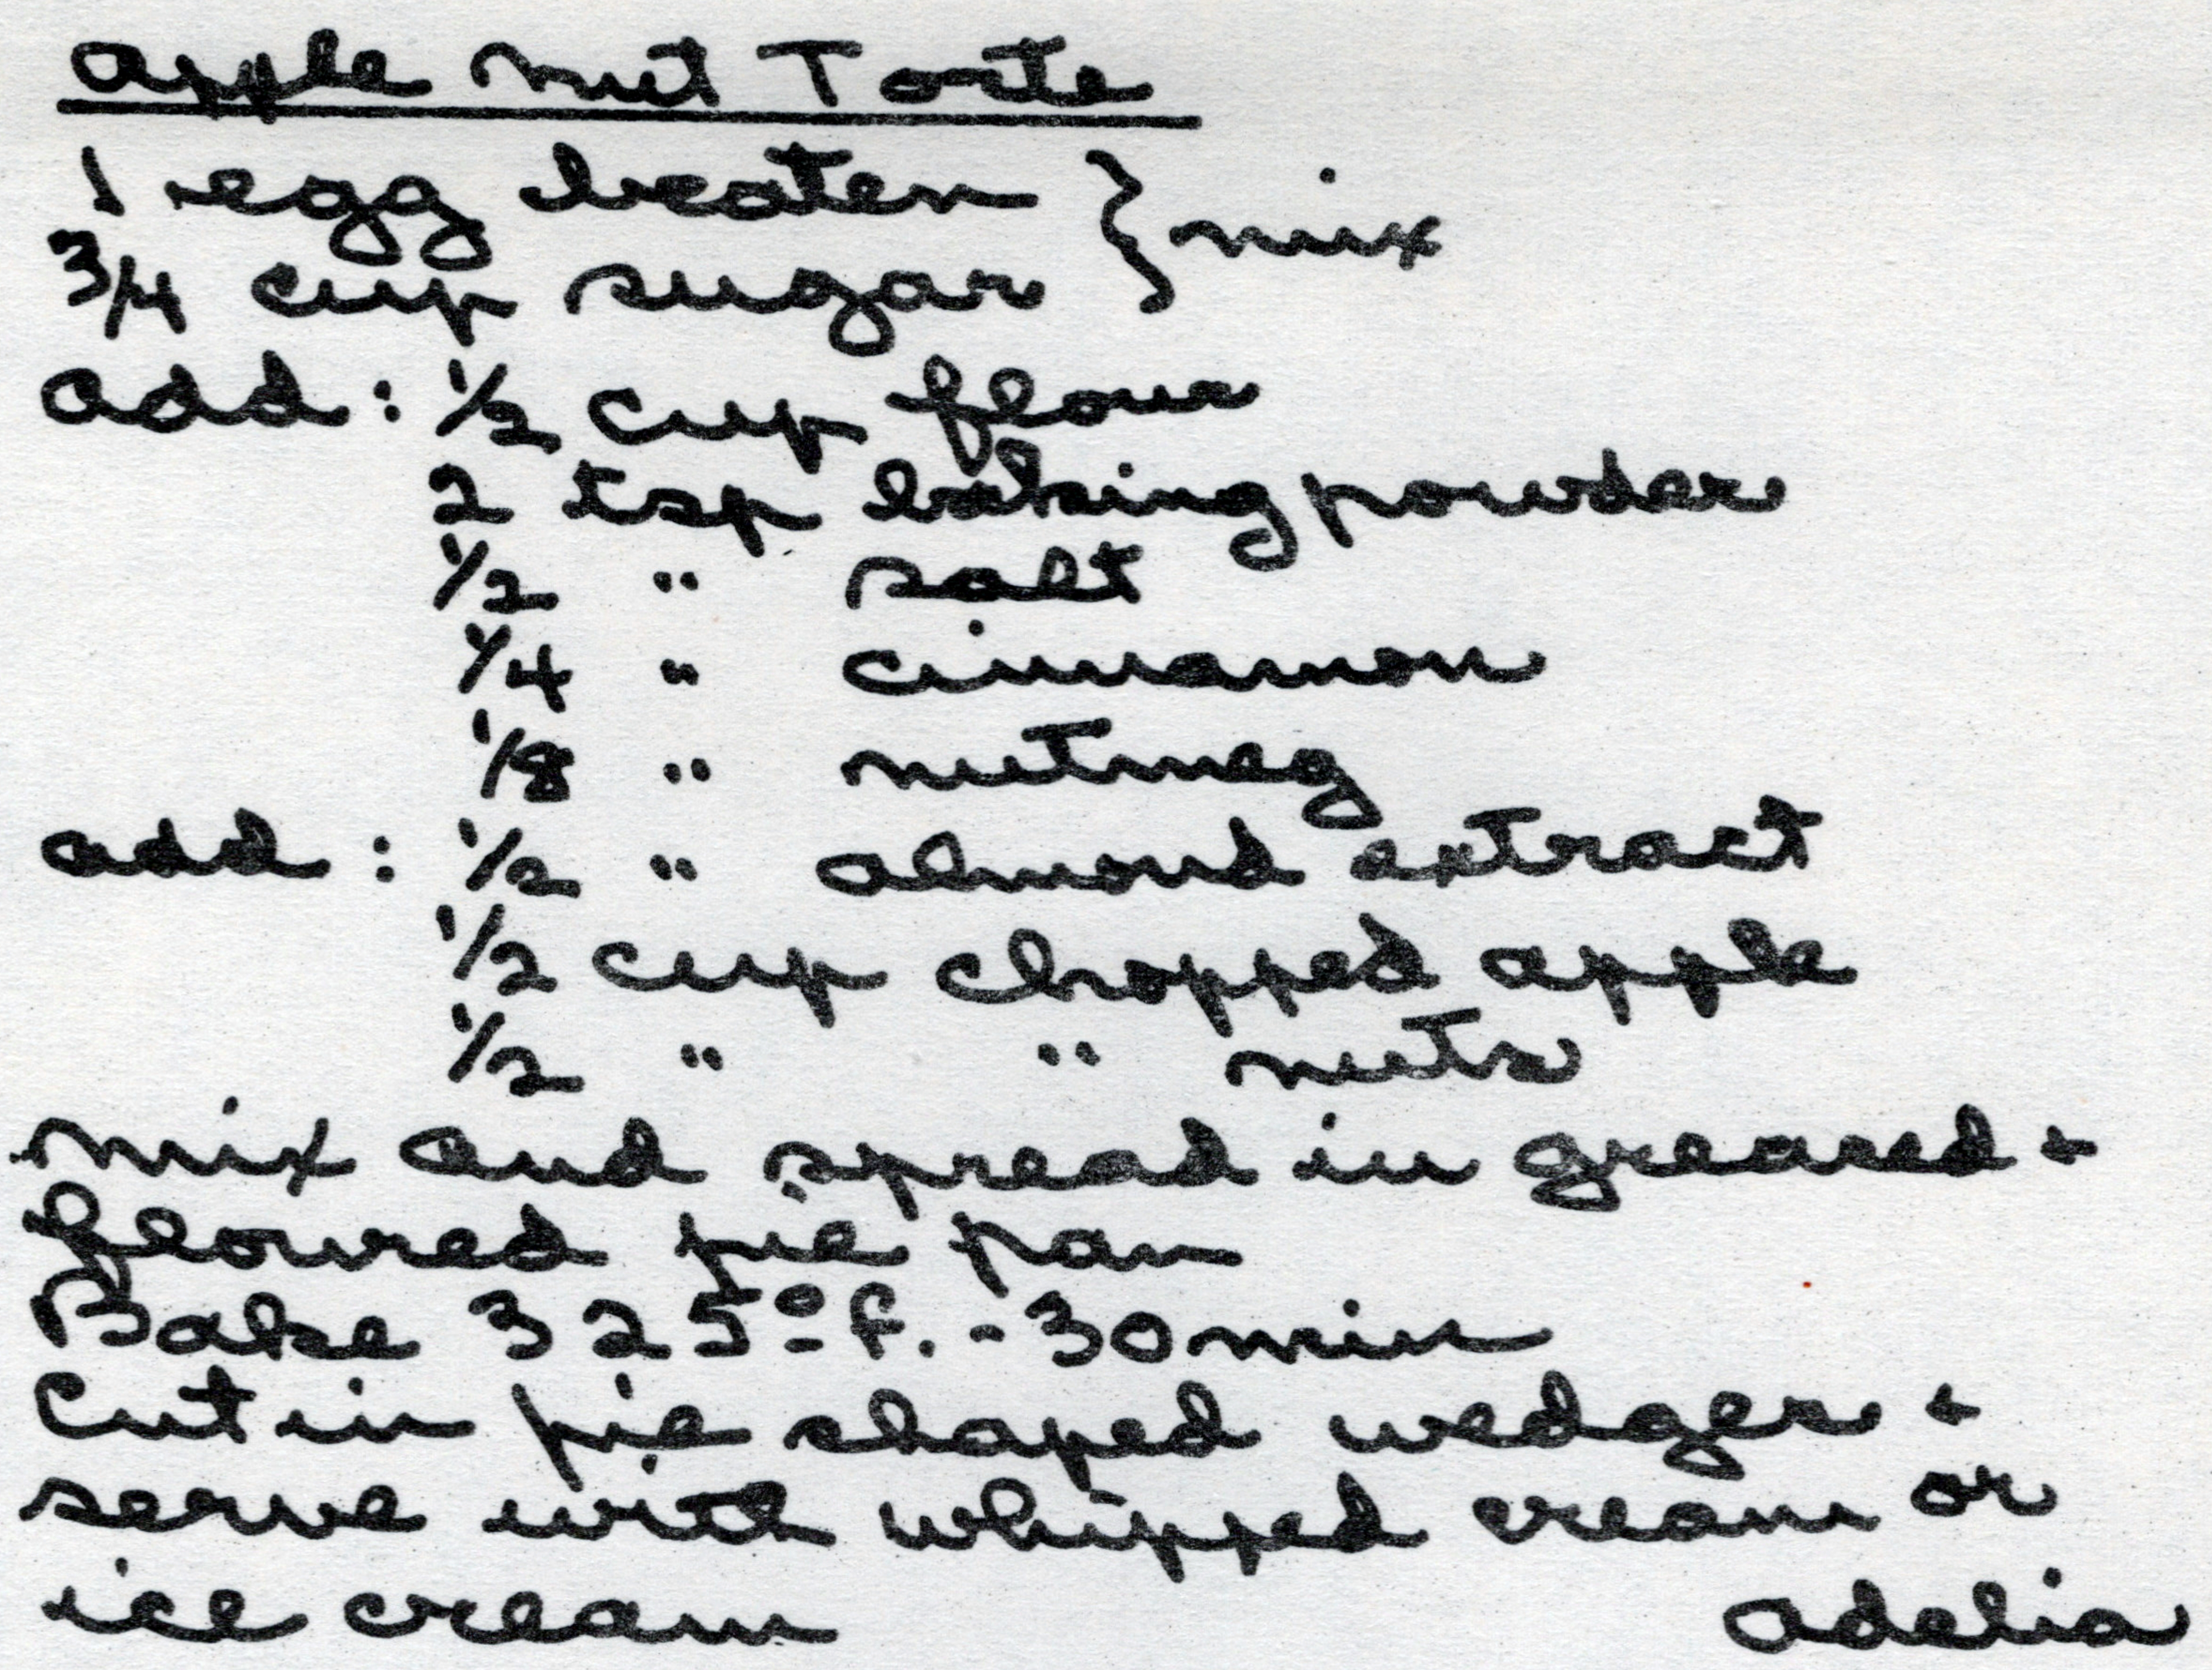 Apple Nut Torte
1 egg beaten } mix
3/4 cup sugar
add : 1/2 cup flour
2 tsp baking powder
1/2 " salt
1/4 " cinnamon
1/8 " nutmeg
add : 1/2 " almond extract
1/2 cup chopped apple
1/2 " " nuts
mix and spread in greased +
floured pie pan
Bake 325° f. - 30 min
Cut in pie shaped wedges +
serve with whipped cream or
ice cream
Adelia